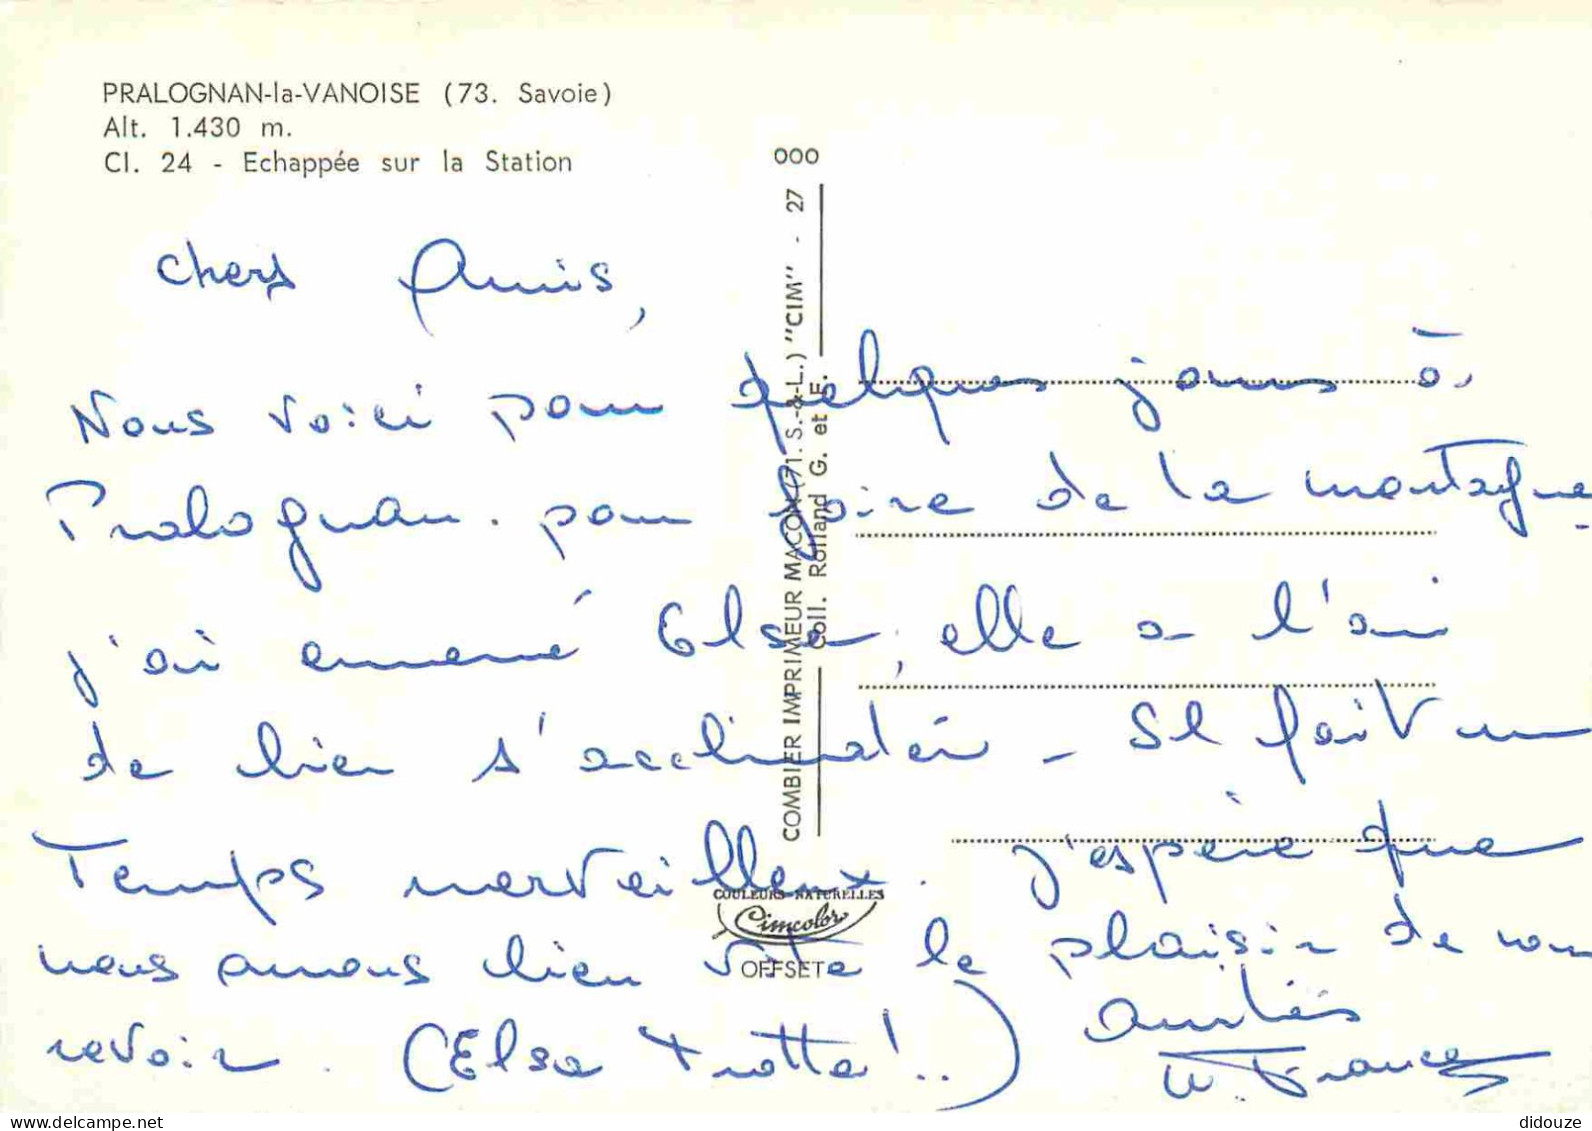 PRALOGNAN-la-VANOISE (73. Savoie)
Alt. 1.430 m.
Cl. 24 - Echappée sur la Station
000
COMBIER IMPRIMEUR MACON (71. S.-&-L.) "CIM" - 27
Coll. Rolland G. et F.
COULEURS NATURELLES
Cimcolor
OFFSET
Chers Amis,
Nous voici pour quelques jours à
Pralognan. pour faire de la montagne
j'ai emmené Elsa, elle a l'air
de bien s'acclimater - Il fait un
Temps merveilleux. J'espère que
nous aurons bien vite le plaisir de vous
revoir. (Elsa trotte!..) Amitiés
France
delcampe.net
didouze